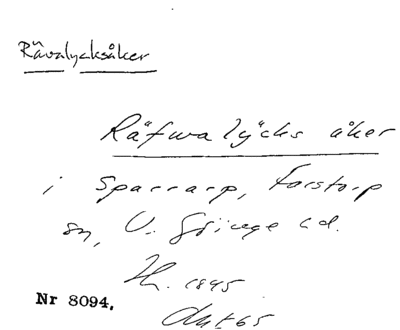 Rävalycksåker
Räfwalÿcks åker
i Sparrarp, Farstorp
sn, V. Göinge hd.
Nr 8094.